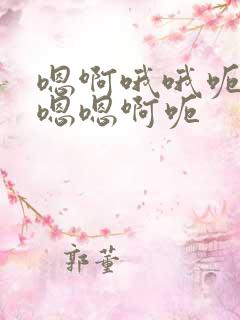 嗯啊哦哦呃
嗯嗯啊呃
郭董